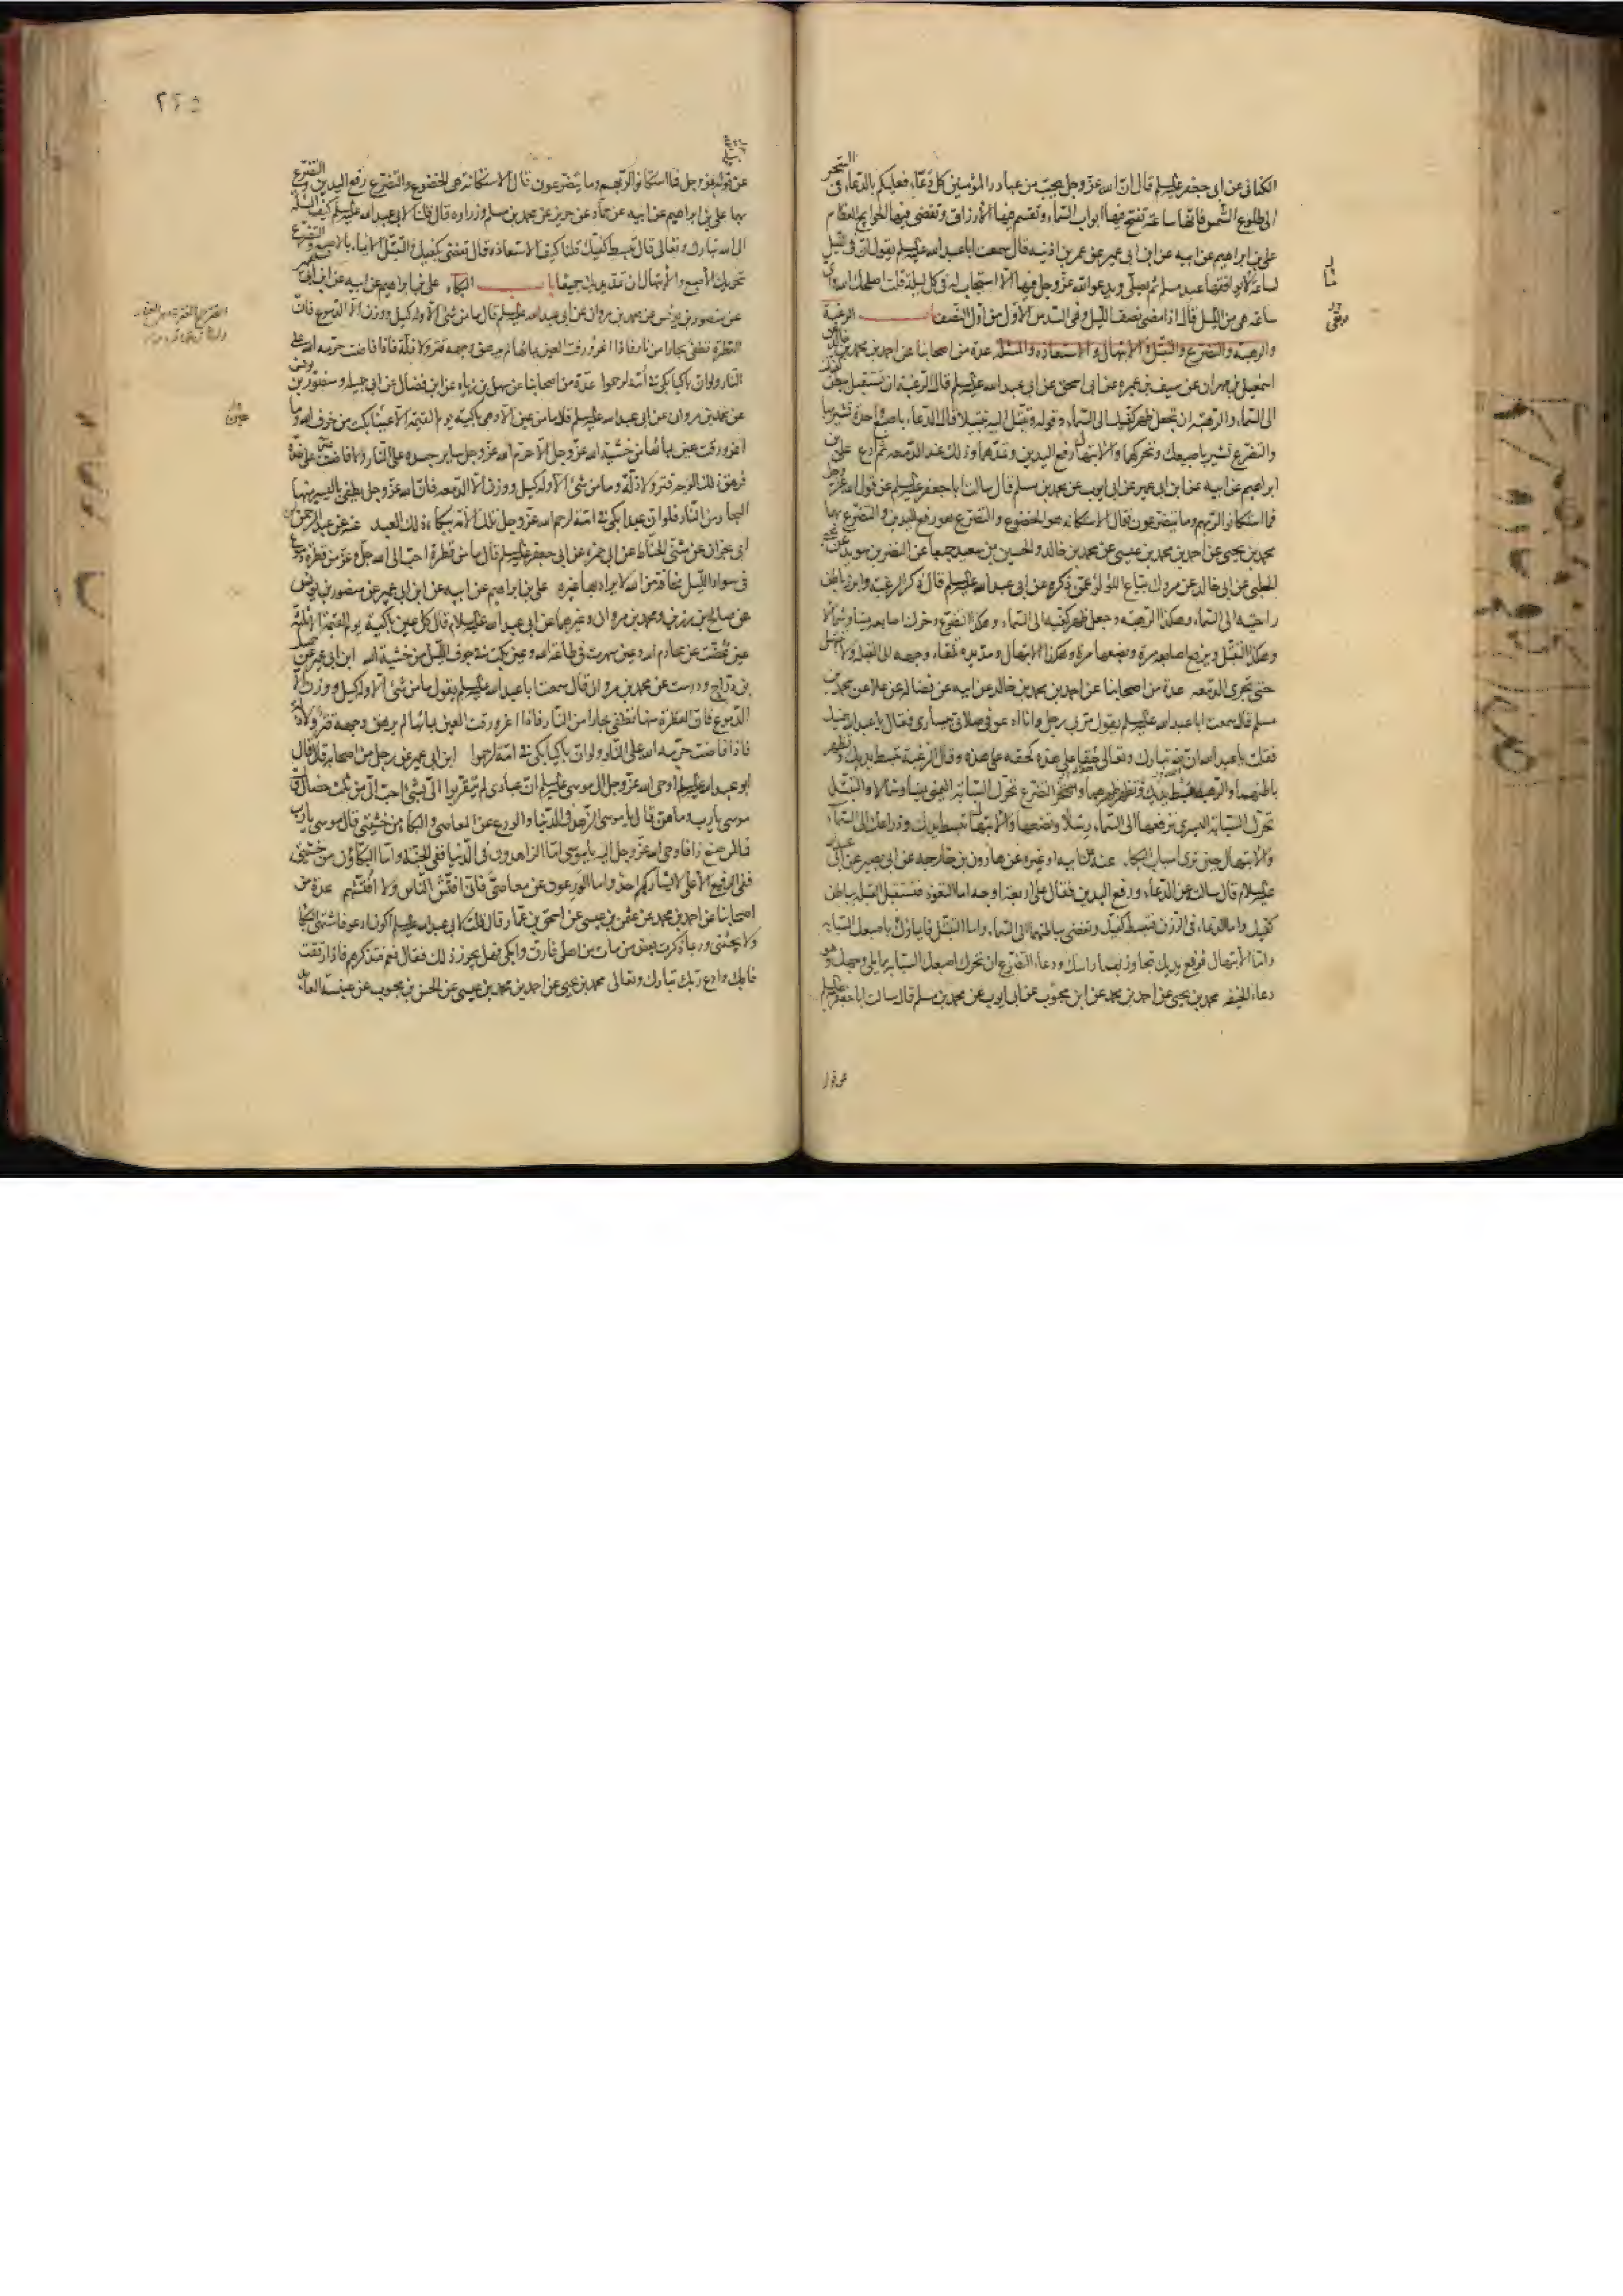 الكنانى عن ابى جعفر عليه السلم قال ان الله عز وجل يحب من عباده المؤمنين كل دعّاء فعليكم بالدعاء فى السحر
الى طلوع الشمس فانها ساعة تفتح فيها ابواب السماء وتقسم فيها الأرزاق وتقضى فيها الحوايج العظام
على بن ابراهيم عن ابيه عن ابن ابى عمير عن عمر بن اذينه قال سمعت ابا عبد الله عليه السلم يقول ان فى الليل
لساعة ما يوافقها عبد مسلم ثم يصلى ويدعو الله عز وجل فيها الا استجاب له فى كل ليلة قلت اصلحك الله واى
ساعة هى من الليل قال اذا مضى نصف الليل وفى السدس الأول من اول النصف باب الرغبة
والرهبة والتضرع والتبتل والابتهال والاستعاذة والمسئلة عدة من اصحابنا عن احمد بن محمد بن خالد عن
اسمعيل بن مهران عن سيف بن عميره عن ابى اسحق عن ابى عبد الله عليه السلم قال الرغبة ان تستقبل ببطن كفيك
الى السماء والرهبة ان تجعل ظهر كفيك الى السماء وقوله وتبتل اليه تبتيلا قال الدعاء باصبع واحدة تشير بها
والتضرع تشير باصبعيك وتحركهما والابتهال رفع اليدين وتمدهما وذلك عند الدمعه ثم ادع على بن
ابراهيم عن ابيه عن ابن ابى عمير عن ابى ايوب عن محمد بن مسلم قال سالت ابا جعفر عليه السلم عن قول الله عز وجل
فما استكانوا لربهم وما يتضرعون فقال الاستكانه هو الخضوع والتضرع هو رفع اليدين والتضرع بهما
محمد بن يحيى عن احمد بن محمد بن عيسى عن محمد بن خالد والحسين بن سعيد جميعا عن النضر بن سويد عن يحيى
الحلبى عن ابى خالد عن مروك بياع اللؤلؤ عمن ذكره عن ابى عبد الله عليه السلم قال ذكر الرغبة وابرز باطن
راحتيه الى السماء وهكذا الرهبه وجعل ظهر كفيه الى السماء وهكذا التضرع وحرك اصابعه يمينا وشمالا
وهكذا التبتل ويرفع اصابعه مرة ويضعها مرة وهكذا الابتهال ومد يده تلقاء وجهه الى القبلة ولا يبتهل
حتى تجرى الدمعه عدة من اصحابنا عن احمد بن محمد بن خالد عن ابيه عن فضاله عن علا عن محمد بن
مسلم قال سمعت ابا عبد الله عليه السلم يقول مر بى رجل وانا ادعو فى صلاتى بيسارى فقال يا عبد الله بيمينك
فقلت يا عبد الله ان لله تبارك وتعالى حقا على هذه كحقه على هذه وقال الرغبة تبسط يديك وتظهر
باطنهما والرهبة تبسط يديك وتظهر ظهرهما والتضرع تحرك السبابة اليمنى يمينا وشمالا والتبتل
تحرك السبابة اليسرى ترفعها الى السماء رسلا وتضعها والابتهال تبسط يديك وذراعيك الى السماء
والابتهال حين ترى اسباب البكاء عنه عن ابيه او غيره عن هارون بن خارجه عن ابى بصير عن ابى عبد الله
عليه السلام قال سالته عن الدعاء ورفع اليدين فقال على اربعة اوجه اما التعوذ فتستقبل القبلة بباطن
كفيك واما الدعاء فى الرزق فتبسط كفيك وتفضى بباطنهما الى السماء واما التبتل فايماؤك باصبعك السبابه
واما الابتهال فرفع يديك تجاوز بهما راسك ودعاء التضرع ان تحرك اصبعك السبابه مما يلى وجهك وهو
دعاء الخيفه محمد بن يحيى عن احمد بن محمد عن ابن محبوب عن ابى ايوب عن محمد بن مسلم قال سالت ابا جعفر عليه السلم
عن قول
٢٢٥
عن قول الله عز وجل فما استكانوا لربهم وما يتضرعون قال الاستكانة هى الخضوع والتضرع رفع اليدين والتضرع
بهما على بن ابراهيم عن ابيه عن حماد عن حريز عن محمد بن مسلم وزراره قال قلنا لابى عبد الله عليه السلم كيف المسئلة
الى الله تبارك وتعالى قال تبسط كفيك قلنا كيف الاستعاذة قال تفضى بكفيك والتبتل الايماء بالاصبع والتضرع
تحريك الاصبع والابتهال ان تمد يديك جميعا باب البكاء على بن ابراهيم عن ابيه عن ابن ابى عمير
عن منصور بن يونس عن محمد بن مروان عن ابى عبد الله عليه السلم قال ما من شىء الا وله كيل ووزن الا الدموع فان
القطرة تطفى بحارا من نار فاذا اغرورقت العين بمائها لم يرهق وجهه قتر ولا ذلة فاذا فاضت حرمه الله على
النار ولو ان باكيا بكى فى امة لرحموا عدة من اصحابنا عن سهل بن زياد عن ابن فضال عن ابى جميله ومنصور بن يونس
عن محمد بن مروان عن ابى عبد الله عليه السلم قال ما من عين الا وهى باكية يوم القيمة الا عينا بكت من خوف الله وما
اغرورقت عين بمائها من خشية الله عز وجل الا حرم الله عز وجل ساير جسده على النار ولا فاضت على خده
فرهق ذلك الوجه قتر ولا ذلة وما من شىء الا وله كيل ووزن الا الدمعه فان الله عز وجل يطفى باليسير منها
البحار من النار فلو ان عبدا بكى فى امة لرحم الله عز وجل تلك الأمة ببكاء ذلك العبد عنه عن عبد الرحمن بن
ابى نجران عن مثنى الحناط عن ابى حمزه عن ابى جعفر عليه السلم قال ما من قطرة احب الى الله جل وعز من قطرة دموع
فى سواد الليل مخافة من الله لا يراد بها غيره على بن ابراهيم عن ابيه عن ابن ابى عمير عن منصور بن يونس
عن صالح بن رزين ومحمد بن مروان وغيرهما عن ابى عبد الله عليه السلام قال كل عين باكية يوم القيمة الا ثلثة
عين غضت عن محارم الله وعين سهرت فى طاعة الله وعين بكت فى جوف الليل من خشية الله ابن ابى عمير عن جميل
بن دراج ودرست عن محمد بن مروان قال سمعت ابا عبد الله عليه السلم يقول ما من شىء الا وله كيل ووزن الا
الدموع فان القطرة منها تطفى بحارا من النار فاذا اغرورقت العين بمائها لم يرهق وجهه قتر ولا ذلة
فاذا فاضت حرمه الله على النار ولو ان باكيا بكى فى امة لرحموا ابن ابى عمير عن رجل من اصحابه قال قال
ابو عبد الله عليه السلم اوحى الله عز وجل الى موسى عليه السلم ان عبادى لم يتقربوا الى بشىء احب الى من ثلث خصال قال
موسى يا رب وما هن قال يا موسى الزهد فى الدنيا والورع عن المعاصى والبكاء من خشيتى قال موسى يا رب
فما لمن صنع ذا فاوحى الله عز وجل اليه يا موسى اما الزاهدون فى الدنيا ففى الجنة واما البكاؤن من خشيتى
ففى الرفيع الأعلى لا يشاركهم احد واما الورعون عن معاصى فانى افتش الناس ولا افتشهم عدة من
اصحابنا عن احمد بن محمد عن عثمن بن عيسى عن اسحق بن عمار قال قلت لابى عبد الله عليه السلم اكون ادعو فاشتهى البكاء
ولا يجئنى وربما ذكرت بعض من مات من اهلى فارق وابكى فهل يجوز ذلك فقال نعم فتذكرهم فاذا رققت
فابك وادع ربك تبارك وتعالى محمد بن يحيى عن احمد بن محمد بن عيسى عن الحسن بن محبوب عن عنبسة العابد